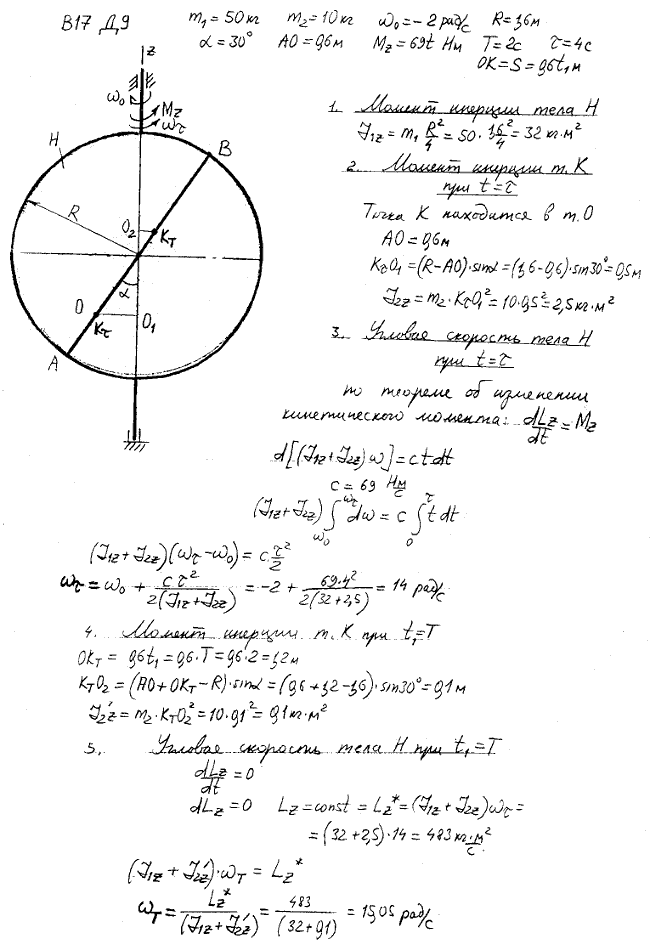 В17 Д.9
m₁ = 50 кг m₂ = 10 кг ω₀ = -2 рад/с R = 1,6 м
α = 30° AO = 0,6 м Mz = 69t Нм T = 2c τ = 4c
OK = S = 0,6t₁ м
z
ω₀
Mz
ωτ
H
B
R
O₂
Kт
α
O
O₁
Kτ
A
1. Момент инерции тела Н
J₁z = m₁ R²/4 = 50 · 1,6²/4 = 32 кг·м²
2. Момент инерции т. К
при t = τ
Точка К находится в т. О
AO = 0,6 м
KτO₁ = (R - AO)·sinα = (1,6 - 0,6)·sin30° = 0,5 м
J₂z = m₂ · KτO₁² = 10·0,5² = 2,5 кг·м²
3. Угловая скорость тела Н
при t = τ
по теореме об изменении
кинетического момента: dLz/dt = Mz
d[(J₁z + J₂z) ω] = c t dt
c = 69 Нм/с
(J₁z + J₂z) ∫ω₀^ωτ dω = c ∫₀^τ t dt
(J₁z + J₂z)(ωτ - ω₀) = c τ²/2
ωτ = ω₀ + cτ²/2(J₁z + J₂z) = -2 + 69·4²/2(32 + 2,5) = 14 рад/с
4. Момент инерции т. К при t₁ = T
OKт = 0,6t₁ = 0,6·T = 0,6·2 = 1,2 м
KтO₂ = (AO + OKт - R)·sinα = (0,6 + 1,2 - 1,6)·sin30° = 0,1 м
J₂z' = m₂ · KтO₂² = 10·0,1² = 0,1 кг·м²
5. Угловая скорость тела Н при t₁ = T
dLz/dt = 0
dLz = 0 Lz = const = Lz* = (J₁z + J₂z) ωτ =
= (32 + 2,5)·14 = 483 кг·м²/с
(J₁z + J₂z')·ωт = Lz*
ωт = Lz*/(J₁z + J₂z') = 483/(32 + 0,1) = 15,05 рад/с